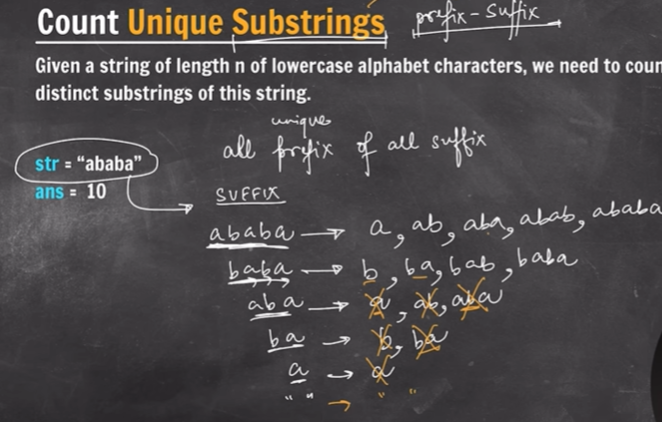 Count Unique Substrings prefix-suffix
Given a string of length n of lowercase alphabet characters, we need to coun
distinct substrings of this string.
unique
all prefix of all suffix
str = "ababa"
ans = 10
SUFFIX
ababa → a, ab, aba, abab, ababa
baba → b, ba, bab, baba
aba → a, ab, aba
ba → b, ba
a → a
" " → " "